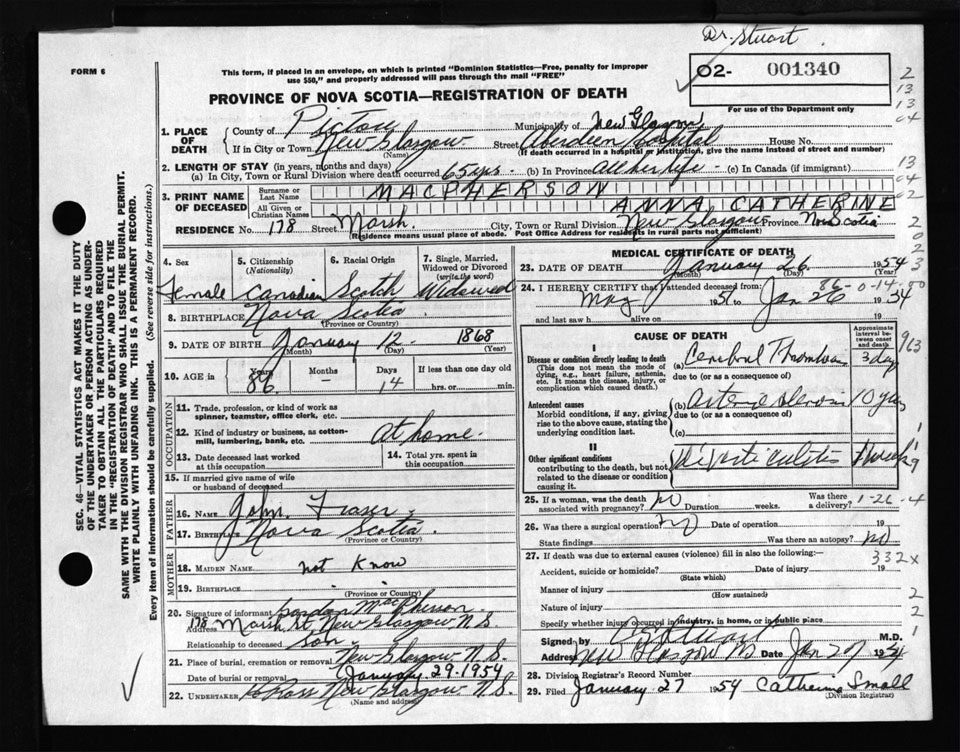 Dr. Stuart
FORM 6
This form, if placed in an envelope, on which is printed "Dominion Statistics—Free, penalty for improper
use $50," and properly addressed will pass through the mail "FREE"
O2- 001340
For use of the Department only
PROVINCE OF NOVA SCOTIA—REGISTRATION OF DEATH
1. PLACE OF DEATH
County of Pictou Municipality of New Glasgow
If in City or Town New Glasgow Street Aberdeen Hospital House No.
(Name) (If death occurred in a hospital or institution, give the name instead of street and number)
2. LENGTH OF STAY (in years, months and days)
(a) In City, Town or Rural Division where death occurred 65 yrs. (b) In Province All her life (c) In Canada (if immigrant)
3. PRINT NAME OF DECEASED
Surname or Last Name MACPHERSON
All Given or Christian Names ANNA CATHERINE
RESIDENCE No. 178 Street Marsh City, Town or Rural Division New Glasgow Province Nova Scotia
Residence means usual place of abode. Post Office Address for residents in rural parts not sufficient)
4. Sex Female
5. Citizenship (Nationality) Canadian
6. Racial Origin Scotch
7. Single, Married, Widowed or Divorced (write the word) Widowed
8. BIRTHPLACE Nova Scotia
(Province or Country)
9. DATE OF BIRTH January 12 1868
(Month) (Day) (Year)
10. AGE in Years 86 Months - Days 14 If less than one day old
hrs. or min.
OCCUPATION
11. Trade, profession, or kind of work as
spinner, teamster, office clerk, etc.
12. Kind of industry or business, as cotton-
mill, lumbering, bank, etc. At home
13. Date deceased last worked
at this occupation
14. Total yrs. spent in
this occupation
15. If married give name of wife
or husband of deceased
FATHER
16. Name John Fraser
17. Birthplace Nova Scotia
(Province or Country)
MOTHER
18. MAIDEN NAME not Know
19. BIRTHPLACE
(Province or Country)
20. Signature of informant Gordon MacPherson
Address 178 Marsh St. New Glasgow N.S.
Relationship to deceased Son
21. Place of burial, cremation or removal New Glasgow N.S.
Date of burial or removal January 29-1954
22. UNDERTAKER Ross New Glasgow N.S.
(Name and address)
MEDICAL CERTIFICATE OF DEATH
23. DATE OF DEATH January 26 1954
(Month) (Day) (Year)
24. I HEREBY CERTIFY that I attended deceased from:
May 1951 to Jan 26 1954
and last saw h alive on 19
86-0-14-
CAUSE OF DEATH
Approximate interval between onset and death
I
Disease or condition directly leading to death
(This does not mean the mode of
dying, e.g., heart failure, asthenia,
etc. It means the disease, injury, or
complication which caused death.)
(a) Cerebral Thrombosis 3 days
due to (or as a consequence of)
Antecedent causes
Morbid conditions, if any, giving
rise to the above cause, stating the
underlying condition last.
(b) Arterio sclerosis 10 yrs
due to (or as a consequence of)
(c)
II
Other significant conditions
contributing to the death, but not
related to the disease or condition
causing it.
Diverticulitis 1 week
25. If a woman, was the death
associated with pregnancy? No Duration weeks. Was there
a delivery?
1-26-4
26. Was there a surgical operation? No Date of operation 19
State findings Was there an autopsy? No
27. If death was due to external causes (violence) fill in also the following:—
332x
Accident, suicide or homicide? Date of injury 19
(State which)
Manner of injury
(How sustained)
Nature of injury
Specify whether injury occurred in industry, in home, or in public place
Signed by Stuart M.D.
Address New Glasgow Date Jan 27 1954
28. Division Registrar's Record Number
29. Filed January 27 1954 Catherine Small
(Division Registrar)
SEC. 46—VITAL STATISTICS ACT MAKES IT THE DUTY
OF THE UNDERTAKER OR PERSON ACTING AS UNDER-
TAKER TO OBTAIN ALL THE PARTICULARS REQUIRED
IN THE "REGISTRATION OF DEATH" AND TO FILE THE
SAME WITH THE DIVISION REGISTRAR WHO SHALL ISSUE THE BURIAL PERMIT.
WRITE PLAINLY WITH UNFADING INK. THIS IS A PERMANENT RECORD.
Every item of information should be carefully supplied. (See reverse side for instructions.)
2
13
13
04
13
04
02
2
0
2
3